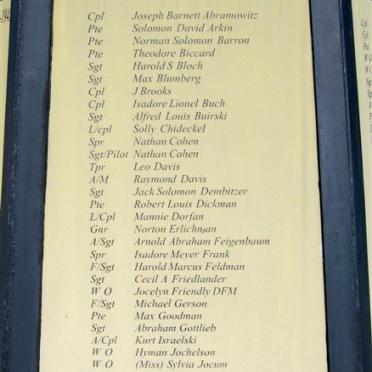 Cpl Joseph Barnett Abramowitz
Pte Solomon David Arkin
Pte Norman Solomon Barron
Pte Theodore Biccard
Sgt Harold S Bloch
Sgt Max Blumberg
Cpl J Brooks
Cpl Isadore Lionel Buch
Sgt Alfred Louis Buirski
L/cpl Solly Chideckel
Spr Nathan Cohen
Sgt/Pilot Nathan Cohen
Tpr Leo Davis
A/M Raymond Davis
Sgt Jack Solomon Dembitzer
Pte Robert Louis Dickman
L/Cpl Mannie Dorfan
Gnr Norton Erlichman
A/Sgt Arnold Abraham Feigenbaum
Spr Isadore Meyer Frank
F/Sgt Harold Marcus Feldman
Sgt Cecil A Friedlander
W O Jocelyn Friendly DFM
F/Sgt Michael Gerson
Pte Max Goodman
Sgt Abraham Gottlieb
A/Cpl Kurt Israelski
W O Hyman Jochelson
W O (Miss) Sylvia Jocum